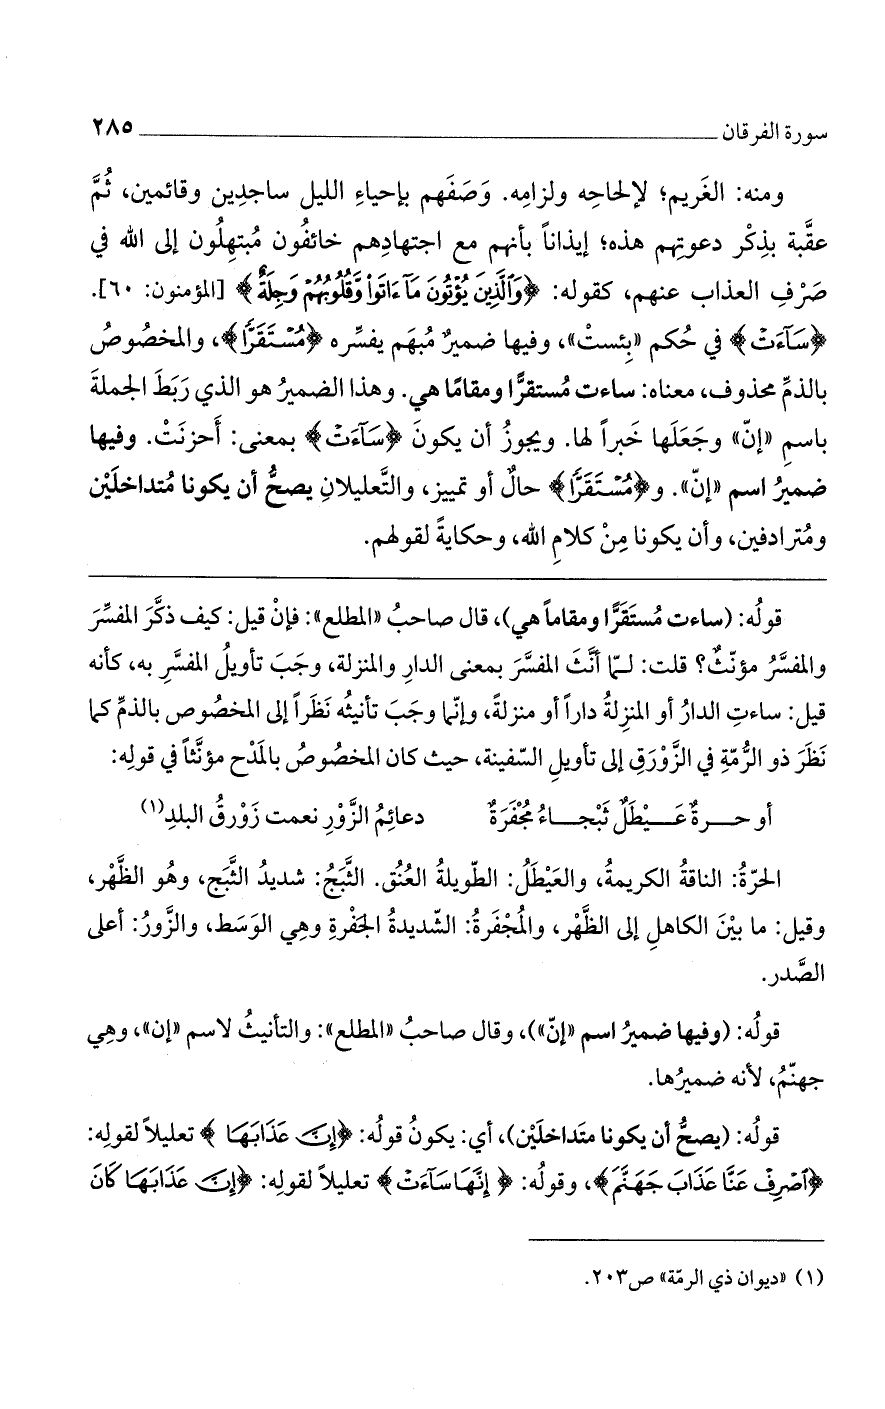 سورة الفرقان ٢٨٥
ومنه: الغَريم؛ لإلحاحِه ولزامِه. وَصَفَهم بإحياءِ الليل ساجدِين وقائمين، ثُمَّ
عقَّبة بذِكْر دعوتِهم هذه؛ إيذاناً بأنهم مع اجتهادِهم خائفُون مُبتهِلُون إلى الله في
صَرْفِ العذاب عنهم، كقوله: ﴿وَٱلَّذِينَ يُؤْتُونَ مَآ ءَاتَواْ وَّقُلُوبُهُمْ وَجِلَةٌ﴾ [المؤمنون: ٦٠].
﴿سَآءَتْ﴾ في حُكم «بِئستْ»، وفيها ضميرٌ مُبهَم يفسِّره ﴿مُسْتَقَرًّا﴾، والمخصُوصُ
بالذمِّ محذوف، معناه: ساءت مُستقرًّا ومقامًا هي. وهذا الضميرُ هو الذي رَبَطَ الجملةَ
باسمِ «إنّ» وجَعَلَها خَبراً لها. ويجوزُ أن يكونَ ﴿سَآءَتْ﴾ بمعنى: أَحزنَتْ. وفيها
ضميرُ اسم «إنّ». و﴿مُسْتَقَرًّا﴾ حالٌ أو تمييز، والتَّعليلانِ يصحُّ أن يكونا مُتداخلَيْن
ومُترادفين، وأن يكونا مِنْ كلامِ الله، وحكايةً لقولهم.
قولُه: (ساءت مُستَقَرًّا ومقاماً هي)، قال صاحبُ «المطلع»: فإنْ قيل: كيف ذكَّرَ المفسِّرَ
والمفسَّرُ مؤنّثٌ؟ قلت: لـمّا أنَّثَ المفسَّرَ بمعنى الدارِ والمنزلة، وجَبَ تأويلُ المفسَّرِ به، كأنه
قيل: ساءتِ الدارُ أو المنزِلةُ داراً أو منزلةً، وإنّما وجَبَ تأنيثُه نَظَراً إلى المخصُوص بالذمِّ كما
نَظَرَ ذو الرُّمّةِ في الزَّوْرَقِ إلى تأويلِ السّفينة، حيث كان المخصُوصُ بالمَدْح مؤنَّثاً في قولِه:
أو حــرةٌ عَــيْطَلٌ ثَبْجــاءُ مُجْفَرَةٌ دعائِمُ الزَّوْرِ نعمت زَوْرقُ البلدِ(١)
الحرّةُ: الناقةُ الكريمةُ، والعَيْطَلُ: الطّويلةُ العُنُق. الثَّبَجُ: شديدُ الثَّبَج، وهُو الظَّهْر،
وقيل: ما بيْنَ الكاهلِ إلى الظَّهْر، والمُجْفَرةُ: الشّديدةُ الجَفْرةِ وهِي الوَسَط، والزَّورُ: أعلى
الصَّدر.
قولُه: (وفيها ضميرُ اسم «إنّ»)، وقال صاحبُ «المطلع»: والتأنيثُ لاسم «إن»، وهِي
جهنّمُ، لأنه ضميرُها.
قولُه: (يصحُّ أن يكونا متَداخلَيْن)، أي: يكونُ قولُه: ﴿إِنَّ عَذَابَهَا﴾ تعليلاً لقولِه:
﴿ٱصْرِفْ عَنَّا عَذَابَ جَهَنَّمَ﴾، وقولُه: ﴿إِنَّهَا سَآءَتْ﴾ تعليلاً لقولِه: ﴿إِنَّ عَذَابَهَا كَانَ
(١) «ديوان ذي الرمّة» ص٢٠٣.